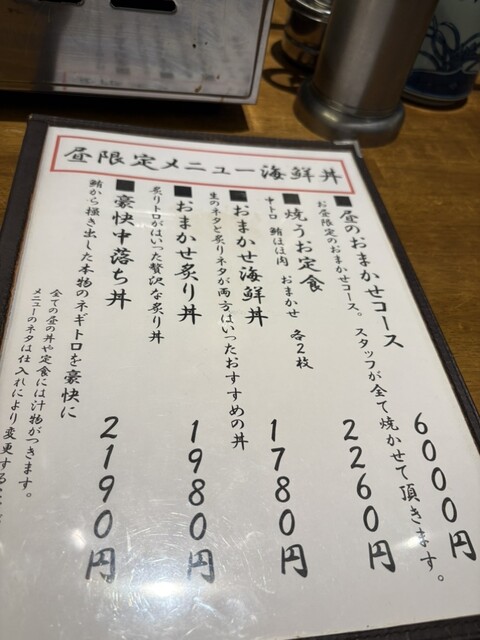 昼限定メニュー海鮮丼
■昼のおまかせコース 6000円
お昼限定のおまかせコース。スタッフが全て焼かせて頂きます。
■焼うお定食 2260円
中トロ 鮪ほほ肉 おまかせ 各2枚
■おまかせ海鮮丼 1780円
生のネタと炙りネタが両方はいったおすすめの丼
■おまかせ炙り丼 1980円
炙りトロがはいった贅沢な炙り丼
■豪快中落ち丼 2190円
鮪から掻き出した本物のネギトロを豪快に
全ての昼の丼や定食には汁物がつきます。
メニューのネタは仕入れにより変更する